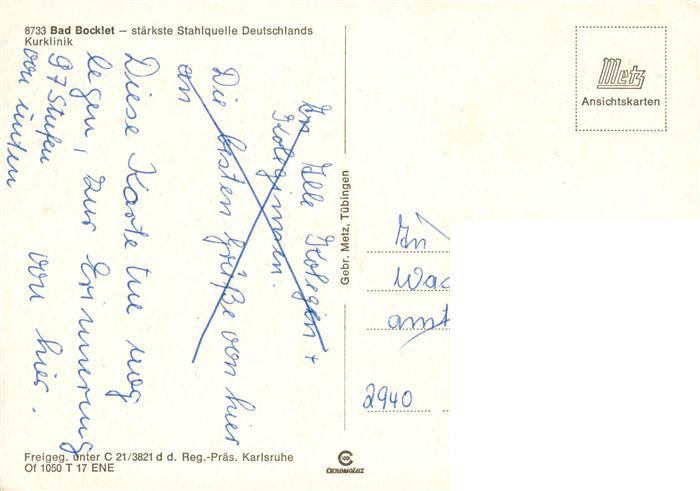 8733 Bad Bocklet – stärkste Stahlquelle Deutschlands
Kurklinik
An Alle Kolegen +
Koleginnen.
Die besten Grüße von hier
an
Diese Karte tue weg
legen, zur Erinnerung
97 Stufen von hier.
von unten
Gebr. Metz, Tübingen
Metz
Ansichtskarten
An
Wac
amt
2940
Freigeg. unter C 21/3821 d d. Reg.-Präs. Karlsruhe
Of 1050 T 17 ENE
CHROMOLUX